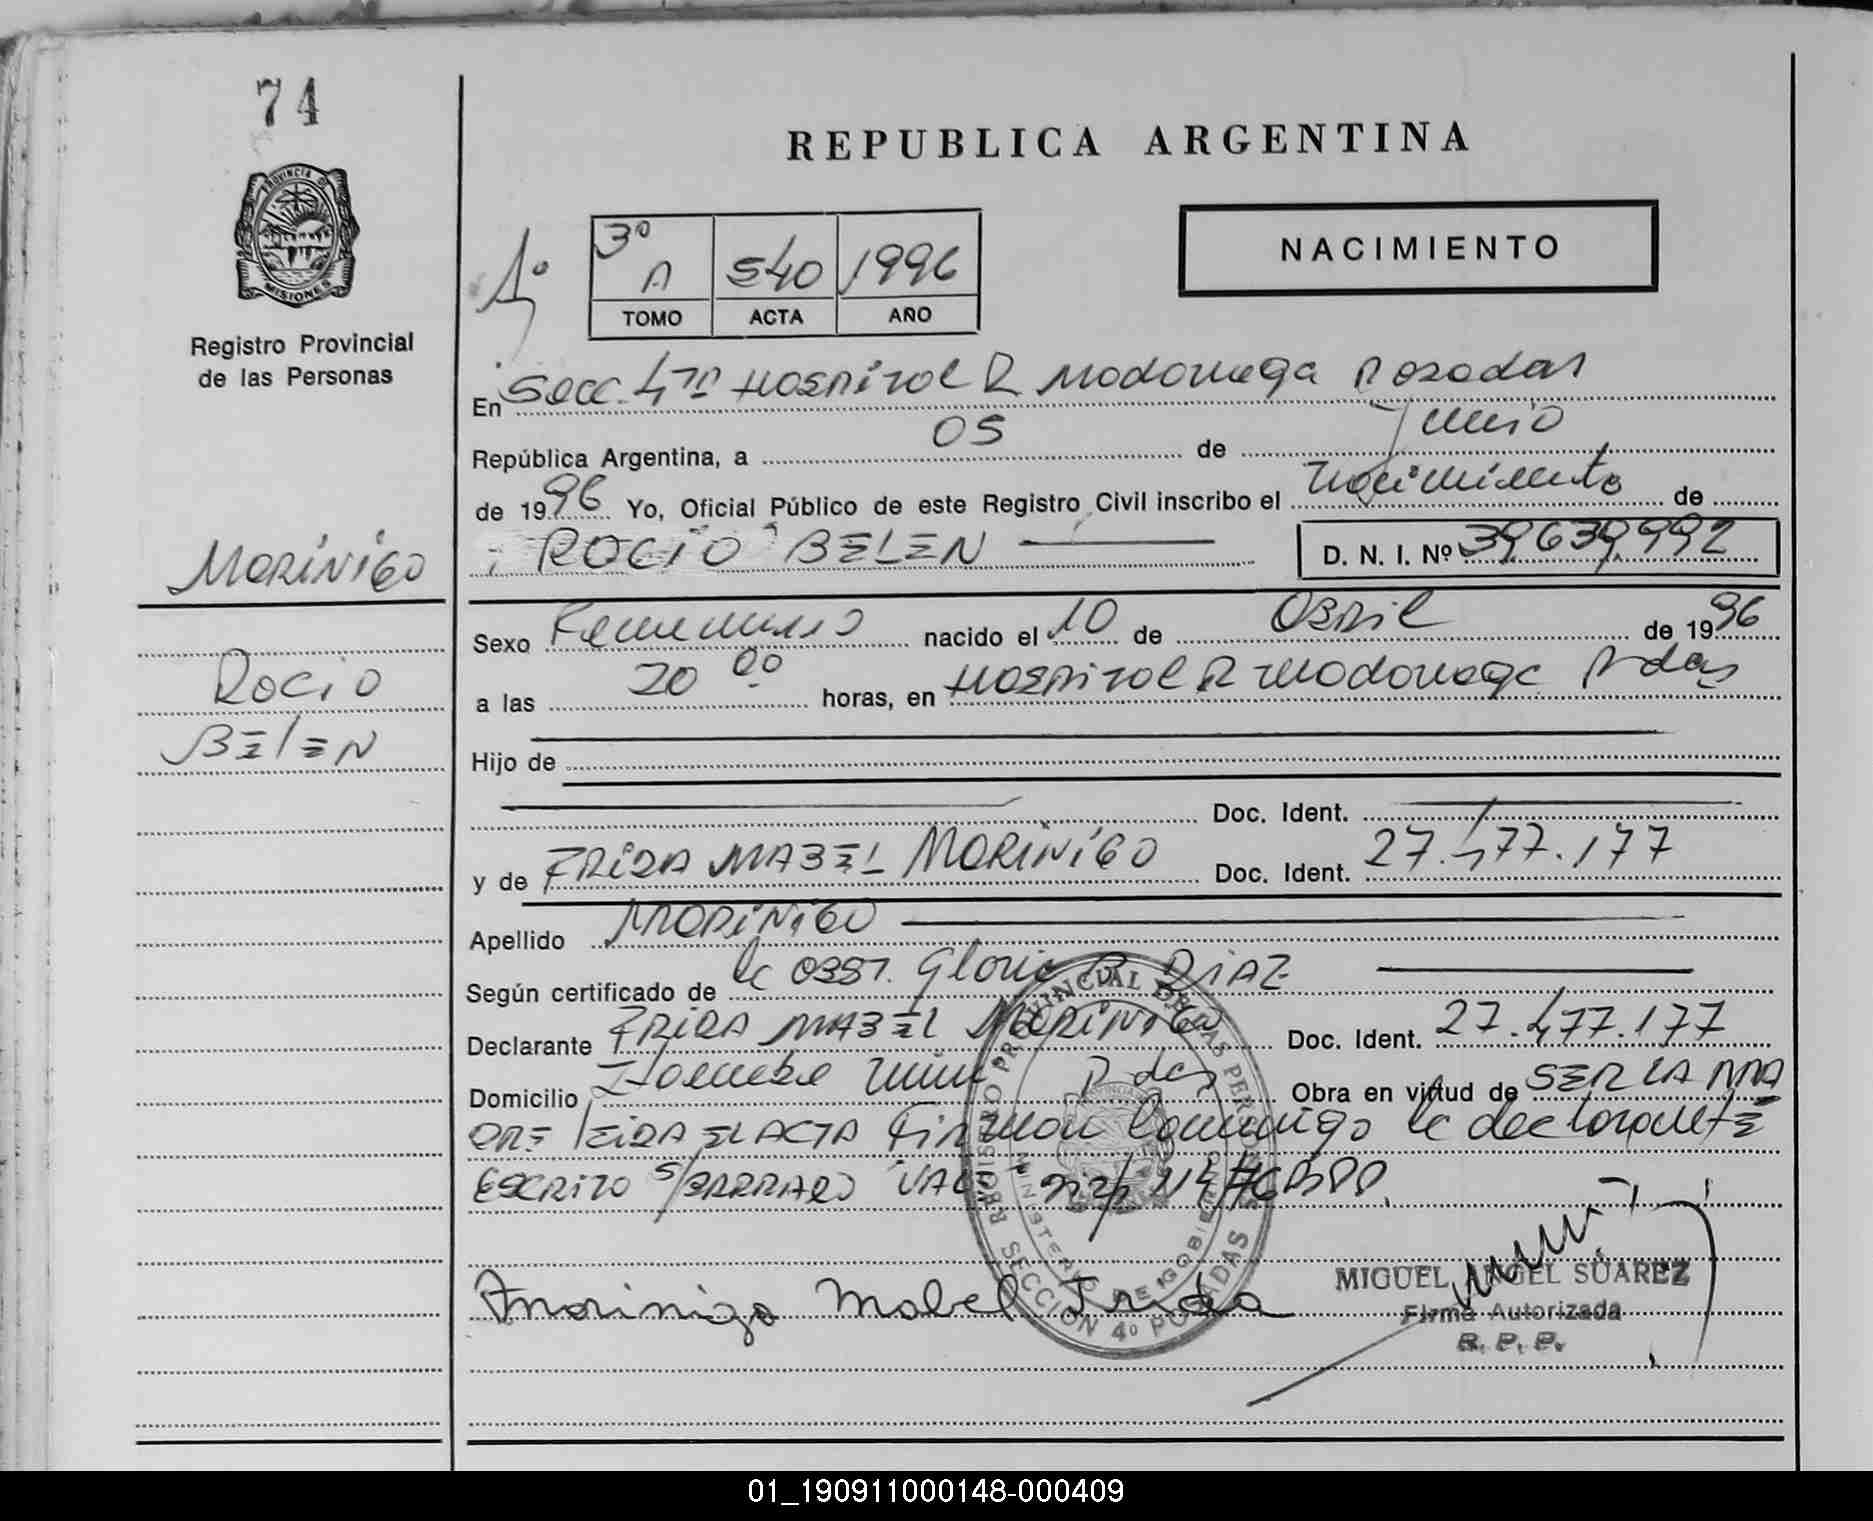 74
PROVINCIA DE
MISIONES
Registro Provincial
de las Personas
REPUBLICA ARGENTINA
1º
3º A 540 1996
TOMO ACTA AÑO
NACIMIENTO
En Secc. 4ta Hospital R Madariaga Posadas
República Argentina, a 05 de Junio
de 1996 Yo, Oficial Público de este Registro Civil inscribo el Nacimiento de
ROCIO BELEN D. N. I. Nº 39,639,992
MORINIGO
Rocio
BELEN
Sexo Femenino nacido el 10 de Abril de 1996
a las 20 00 horas, en Hospital R Madariaga Pdas
Hijo de
Doc. Ident.
y de FRIDA MABEL MORINIGO Doc. Ident. 27.477.177
Apellido MORINIGO
Según certificado de la OBST. Gloria R. DIAZ
Declarante FRIDA MABEL MORINIGO Doc. Ident. 27.477.177
Domicilio Pdas Obra en virtud de SER LA MA
DRE LEIDA EL ACTA Firman Conmigo la declarante
ESCRITO S/BORRADO VALE
REGISTRO PROVINCIAL DE LAS PERSONAS
MINISTERIO DE GOBIERNO
SECCION 4º POSADAS
Morinigo Mabel Frida
MIGUEL ANGEL SUAREZ
Firma Autorizada
R. P. P.
01_190911000148-000409